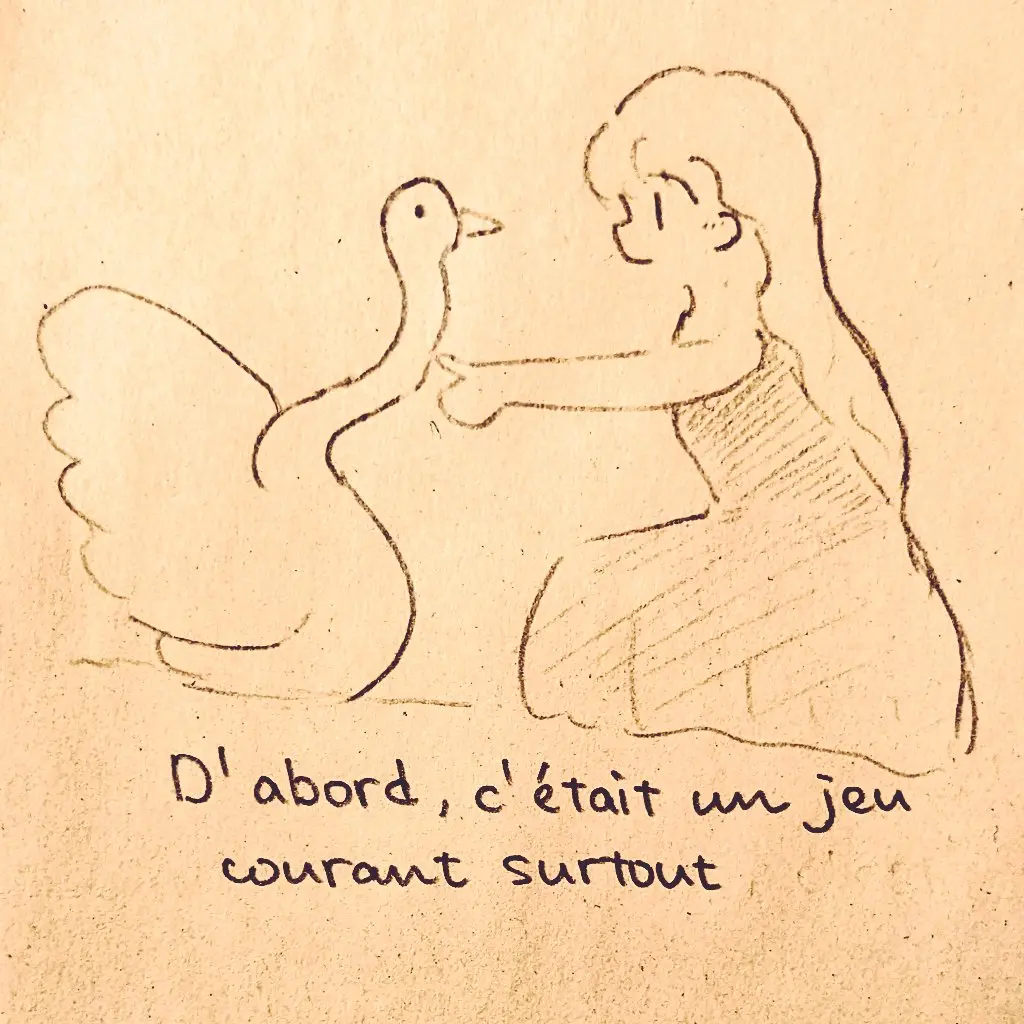 D'abord, c'était un jeu
courant surtout